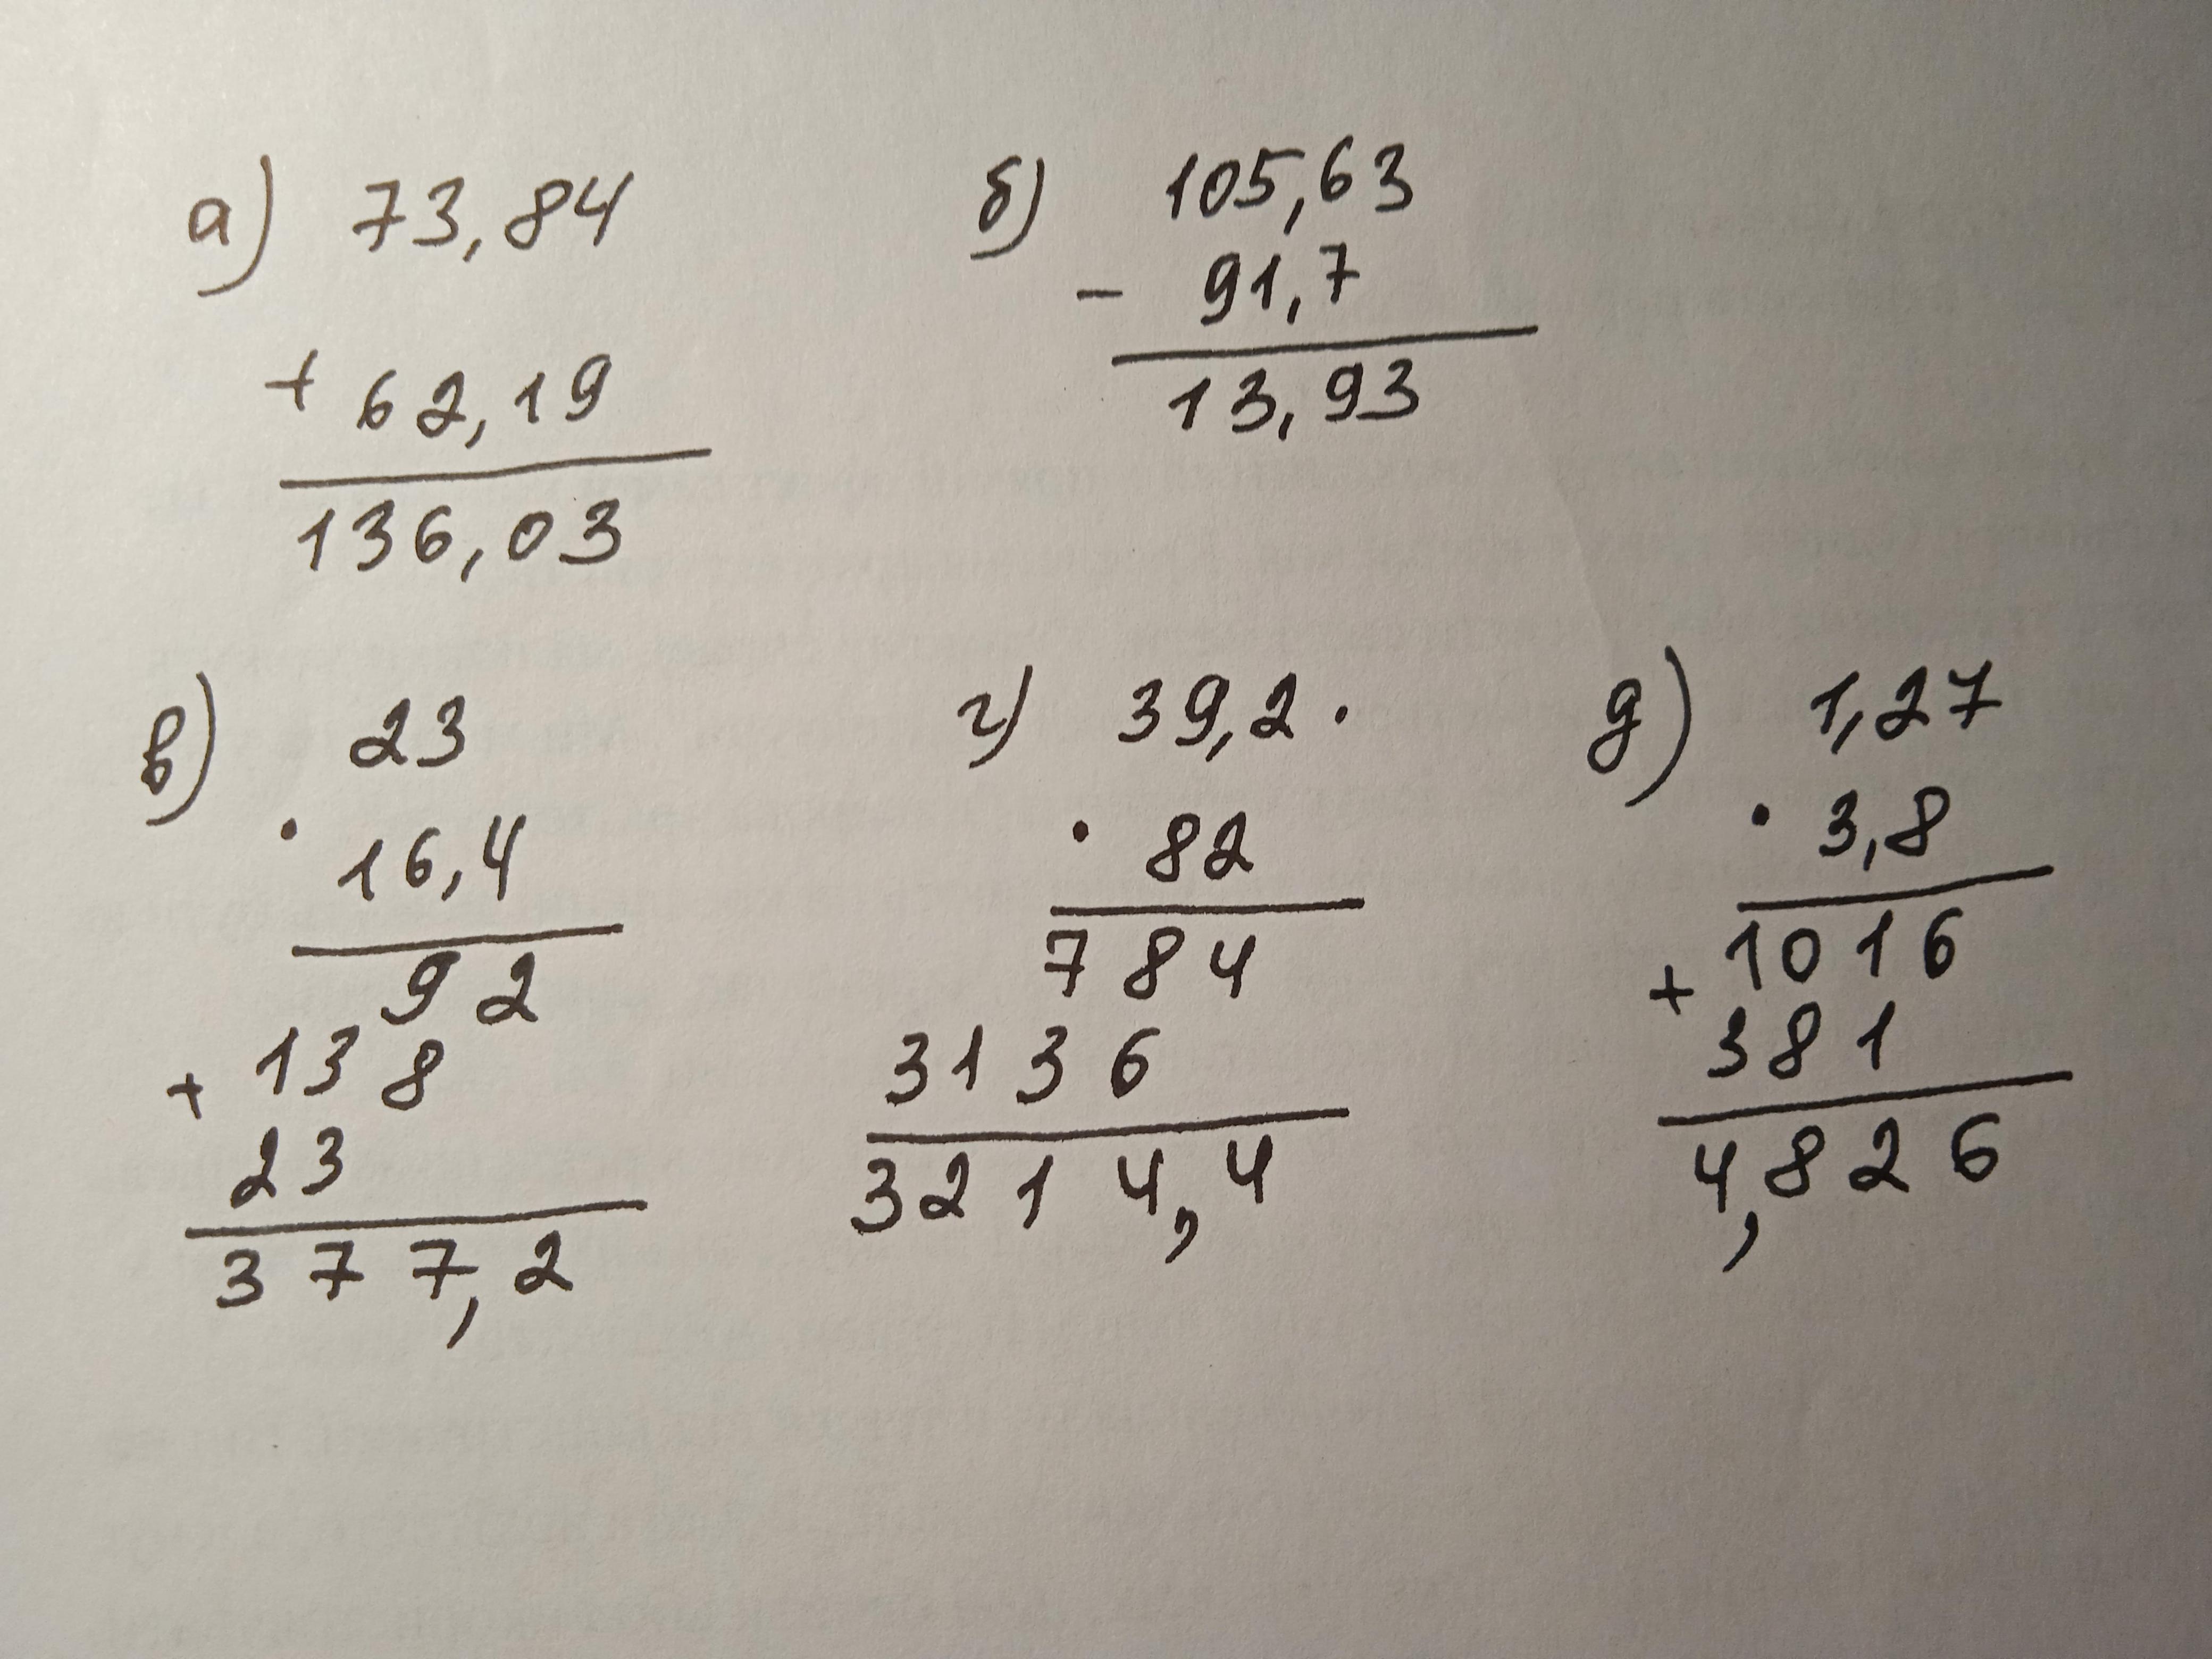 а) 73,84
+ 62,19
136,03
б) 105,63
- 91,7
13,93
в) 23
· 16,4
92
+ 138
23
377,2
г) 39,2 ·
· 82
784
3136
3214,4
д) 1,27
· 3,8
1016
+ 381
4,826